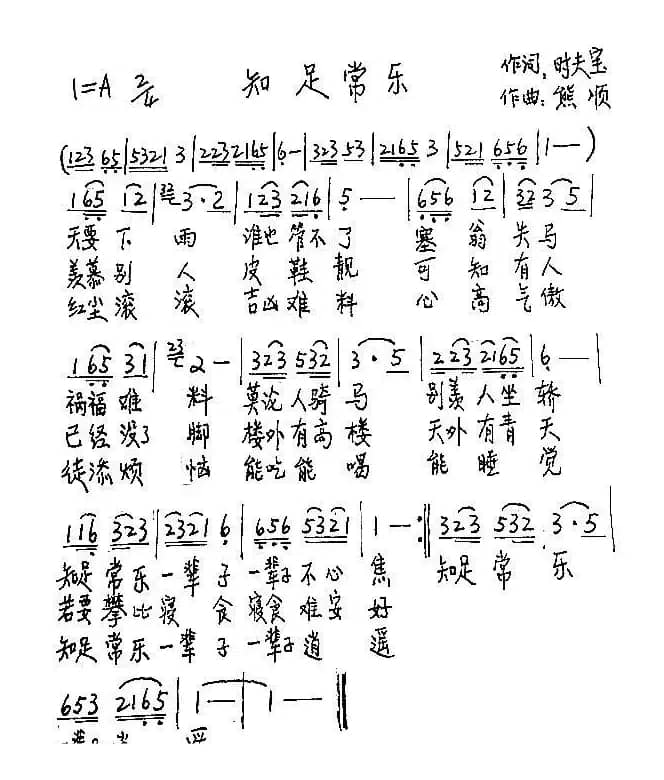 1=A 2/4 知足常乐 作词:时夫宝
作曲:熊顺
(123 65|5321 3|223 2165|6-|323 53|2165 3|521 656|1—)
165 12|3·2|123 216|5—|656 12|32 3 5|
天要下雨 谁也管不了 塞翁失马
羡慕别人 皮鞋靓 可知有人
红尘滚滚 吉凶难料 心高气傲
165 31|2-|323 532|3·5|223 2165|6—|
祸福难料 莫论人骑马 别羡人坐轿
已经没了脚 楼外有高楼 天外有青天
徒添烦恼 能吃能喝 能睡觉
116 323|2321 6|656 5321|1-:||323 532 3·5|
知足常乐一辈子一辈子不心焦 知足常乐
若要攀比寝食寝食难安好
知足常乐一辈子一辈子逍遥
653 2165|1—|1—||